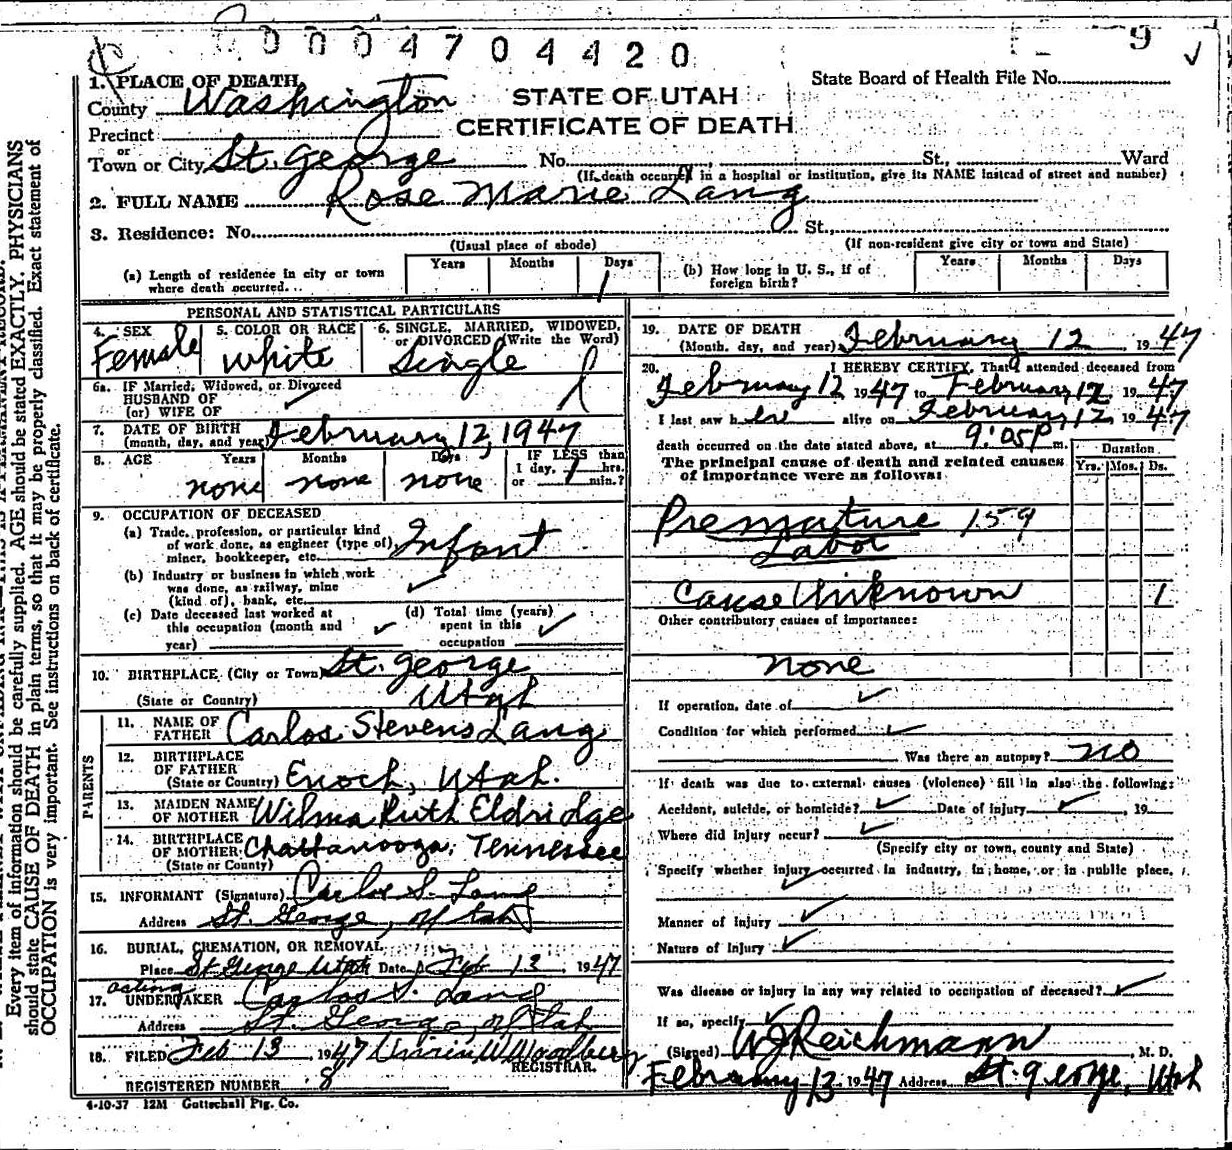 0004704420 9
1. PLACE OF DEATH
State Board of Health File No.
County Washington
STATE OF UTAH
Precinct
CERTIFICATE OF DEATH
or
Town or City St. George No. , St., Ward
(If death occurred in a hospital or institution, give its NAME instead of street and number)
2. FULL NAME Rose Marie Lang
3. Residence: No. St.,
(Usual place of abode) (If non-resident give city or town and State)
(a) Length of residence in city or town where death occurred... Years Months Days 1
(b) How long in U. S., if of foreign birth? Years Months Days
PERSONAL AND STATISTICAL PARTICULARS
4. SEX Female
5. COLOR OR RACE white
6. SINGLE, MARRIED, WIDOWED, or DIVORCED (Write the Word) Single
6a. IF Married, Widowed, or Divorced
HUSBAND OF
(or) WIFE OF
7. DATE OF BIRTH
(month, day, and year) February 12, 1947
8. AGE Years Months Days IF LESS than
none none none 1 day, 1 hrs.
or min.?
9. OCCUPATION OF DECEASED
(a) Trade, profession, or particular kind
of work done, as engineer (type of), Infant
miner, bookkeeper, etc.
(b) Industry or business in which work
was done, as railway, mine
(kind of), bank, etc.
(c) Date deceased last worked at
this occupation (month and
year)
(d) Total time (years)
spent in this
occupation
10. BIRTHPLACE (City or Town) St. George
(State or Country) Utah
PARENTS
11. NAME OF
FATHER Carlos Stevens Lang
12. BIRTHPLACE
OF FATHER
(State or Country) Enoch, Utah.
13. MAIDEN NAME
OF MOTHER Wilma Ruth Eldridge
14. BIRTHPLACE
OF MOTHER Chattanooga, Tennessee
(State or County)
15. INFORMANT (Signature) Carlos S. Lang
Address St. George, Utah
16. BURIAL, CREMATION, OR REMOVAL
Place St George Utah Date Feb 13 1947
acting
17. UNDERTAKER Carlos S. Lang
Address St. George, Utah
18. FILED Feb 13, 1947 W Woodbury
REGISTRAR.
REGISTERED NUMBER 8
4-10-37 12M Gottschall Ptg. Co.
19. DATE OF DEATH
(Month, day, and year) February 12 1947
20. I HEREBY CERTIFY, That I attended deceased from
February 12 1947 to February 12, 1947
I last saw her alive on February 12, 1947
death occurred on the date stated above, at 9:05P m.
The principal cause of death and related causes
of importance were as follows:
Duration
Yrs. Mos. Ds.
Premature 159
Labor
Cause Unknown 1
Other contributory causes of importance:
none
If operation, date of
Condition for which performed
Was there an autopsy? no
If death was due to external causes (violence) fill in also the following:
Accident, suicide, or homicide? Date of injury 19
Where did injury occur?
(Specify city or town, county and State)
Specify whether injury occurred in industry, in home, or in public place.
Manner of Injury
Nature of Injury
Was disease or injury in any way related to occupation of deceased?
If so, specify
(Signed) W J Reichmann, M. D.
February 13 1947 Address St. George, Utah
Every item of information should be carefully supplied. AGE should be stated EXACTLY. PHYSICIANS
should state CAUSE OF DEATH in plain terms, so that it may be properly classified. Exact statement of
OCCUPATION is very important. See instructions on back of certificate.